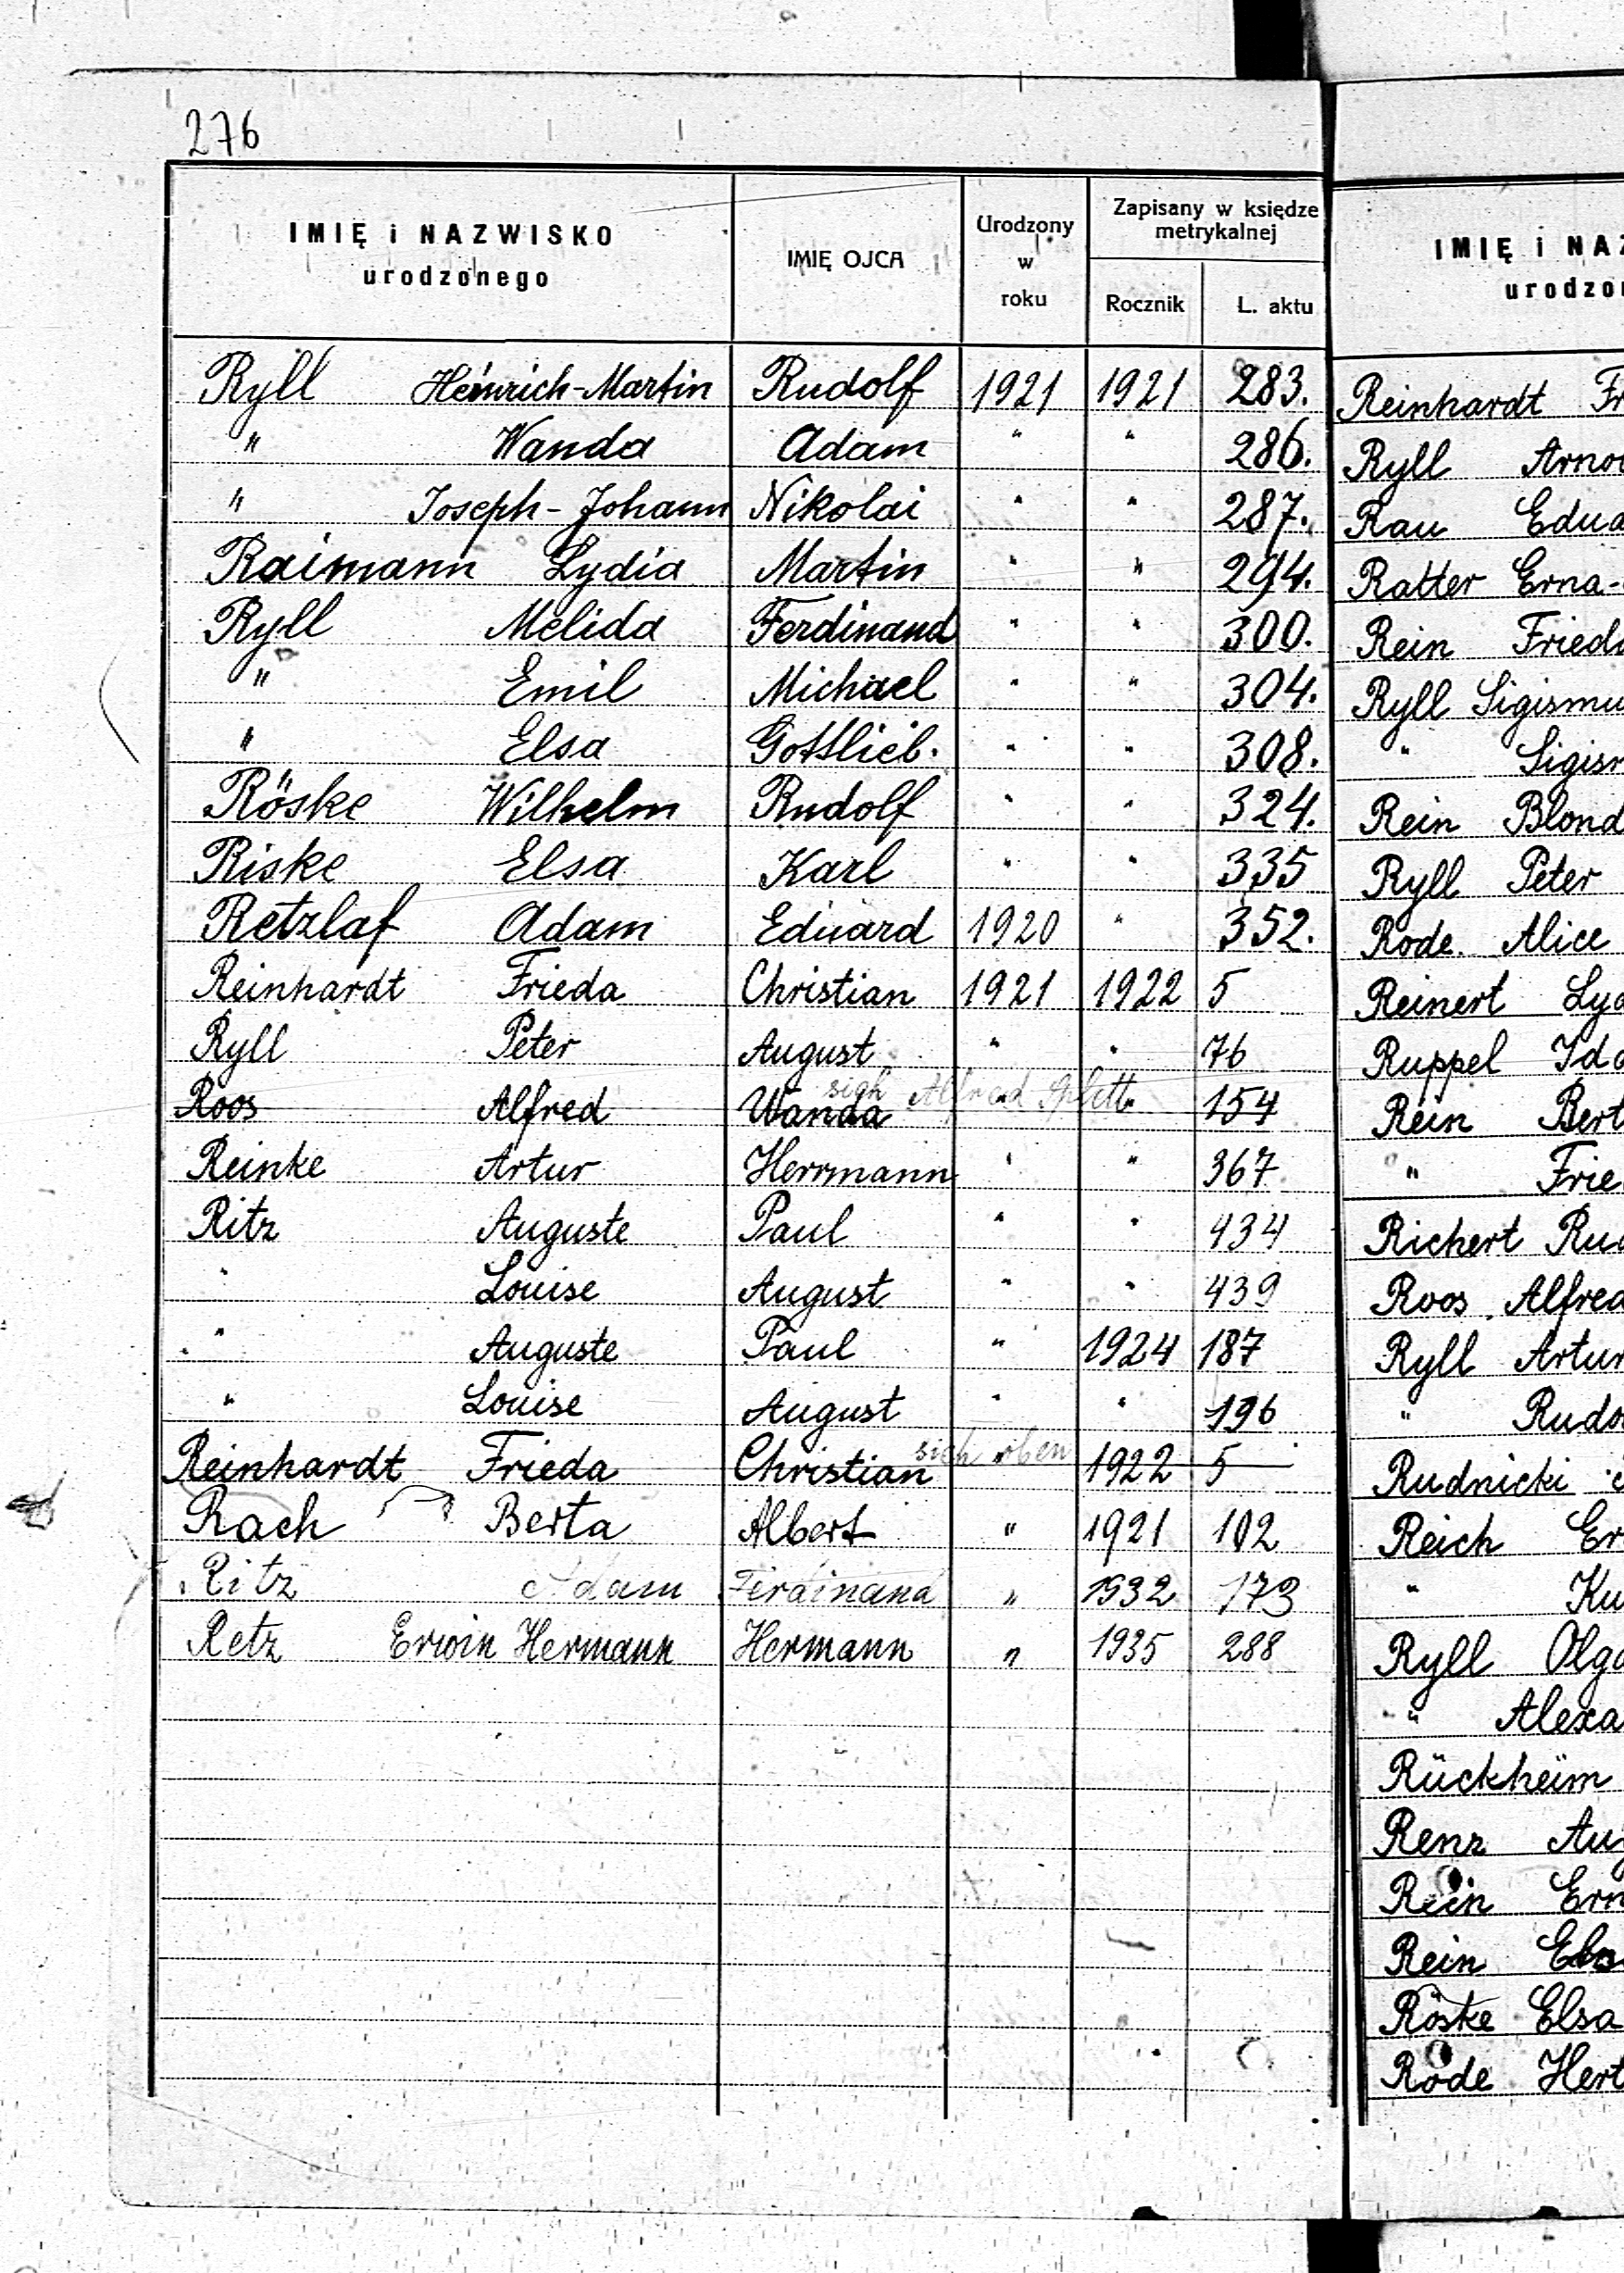 276
IMIĘ i NAZWISKO urodzonego IMIĘ OJCA Urodzony w roku Zapisany w księdze metrykalnej Rocznik L. aktu
Ryll Heinrich-Martin Rudolf 1921 1921 283.
" Wanda Adam " " 286.
" Joseph-Johann Nikolai " " 287.
Raimann Lydia Martin " " 294.
Ryll Melida Ferdinand " " 300.
" Emil Michael " " 304.
" Elsa Gottlieb. " " 308.
Röske Wilhelm Rudolf " " 324.
Riske Elsa Karl " " 335
Retzlaf Adam Eduard 1920 " 352.
Reinhardt Frieda Christian 1921 1922 5
Ryll Peter August " " 76
sieh Alfred Splett
Roos Alfred Wanda " " 154
Reinke Artur Herrmann " " 367
Ritz Auguste Paul " " 434
" Louise August " " 439
" Auguste Paul " 1924 187
" Louise August " " 196
sieh oben
Reinhardt Frieda Christian " 1922 5
Rach Berta Albert " 1921 102
Ritz Adam Ferdinand " 1932 173
Retz Erwin Hermann Hermann " 1935 288
IMIĘ i NAZ
urodzon
Reinhardt Fr
Ryll Arno
Rau Edua
Ratter Erna-
Rein Frieda
Ryll Sigismu
" Sigism
Rein Blond
Ryll Peter
Rode. Alice
Reinert Lyd
Ruppel Ida
Rein Bert
" Frie
Richert Rud
Roos Alfred
Ryll Artur
" Rudo
Rudnicki
Reich Er
" Ku
Ryll Olga
" Alexa
Rückheim
Renz Aug
Rein Ern
Rein Elsa
Röske Elsa
Rode Hert